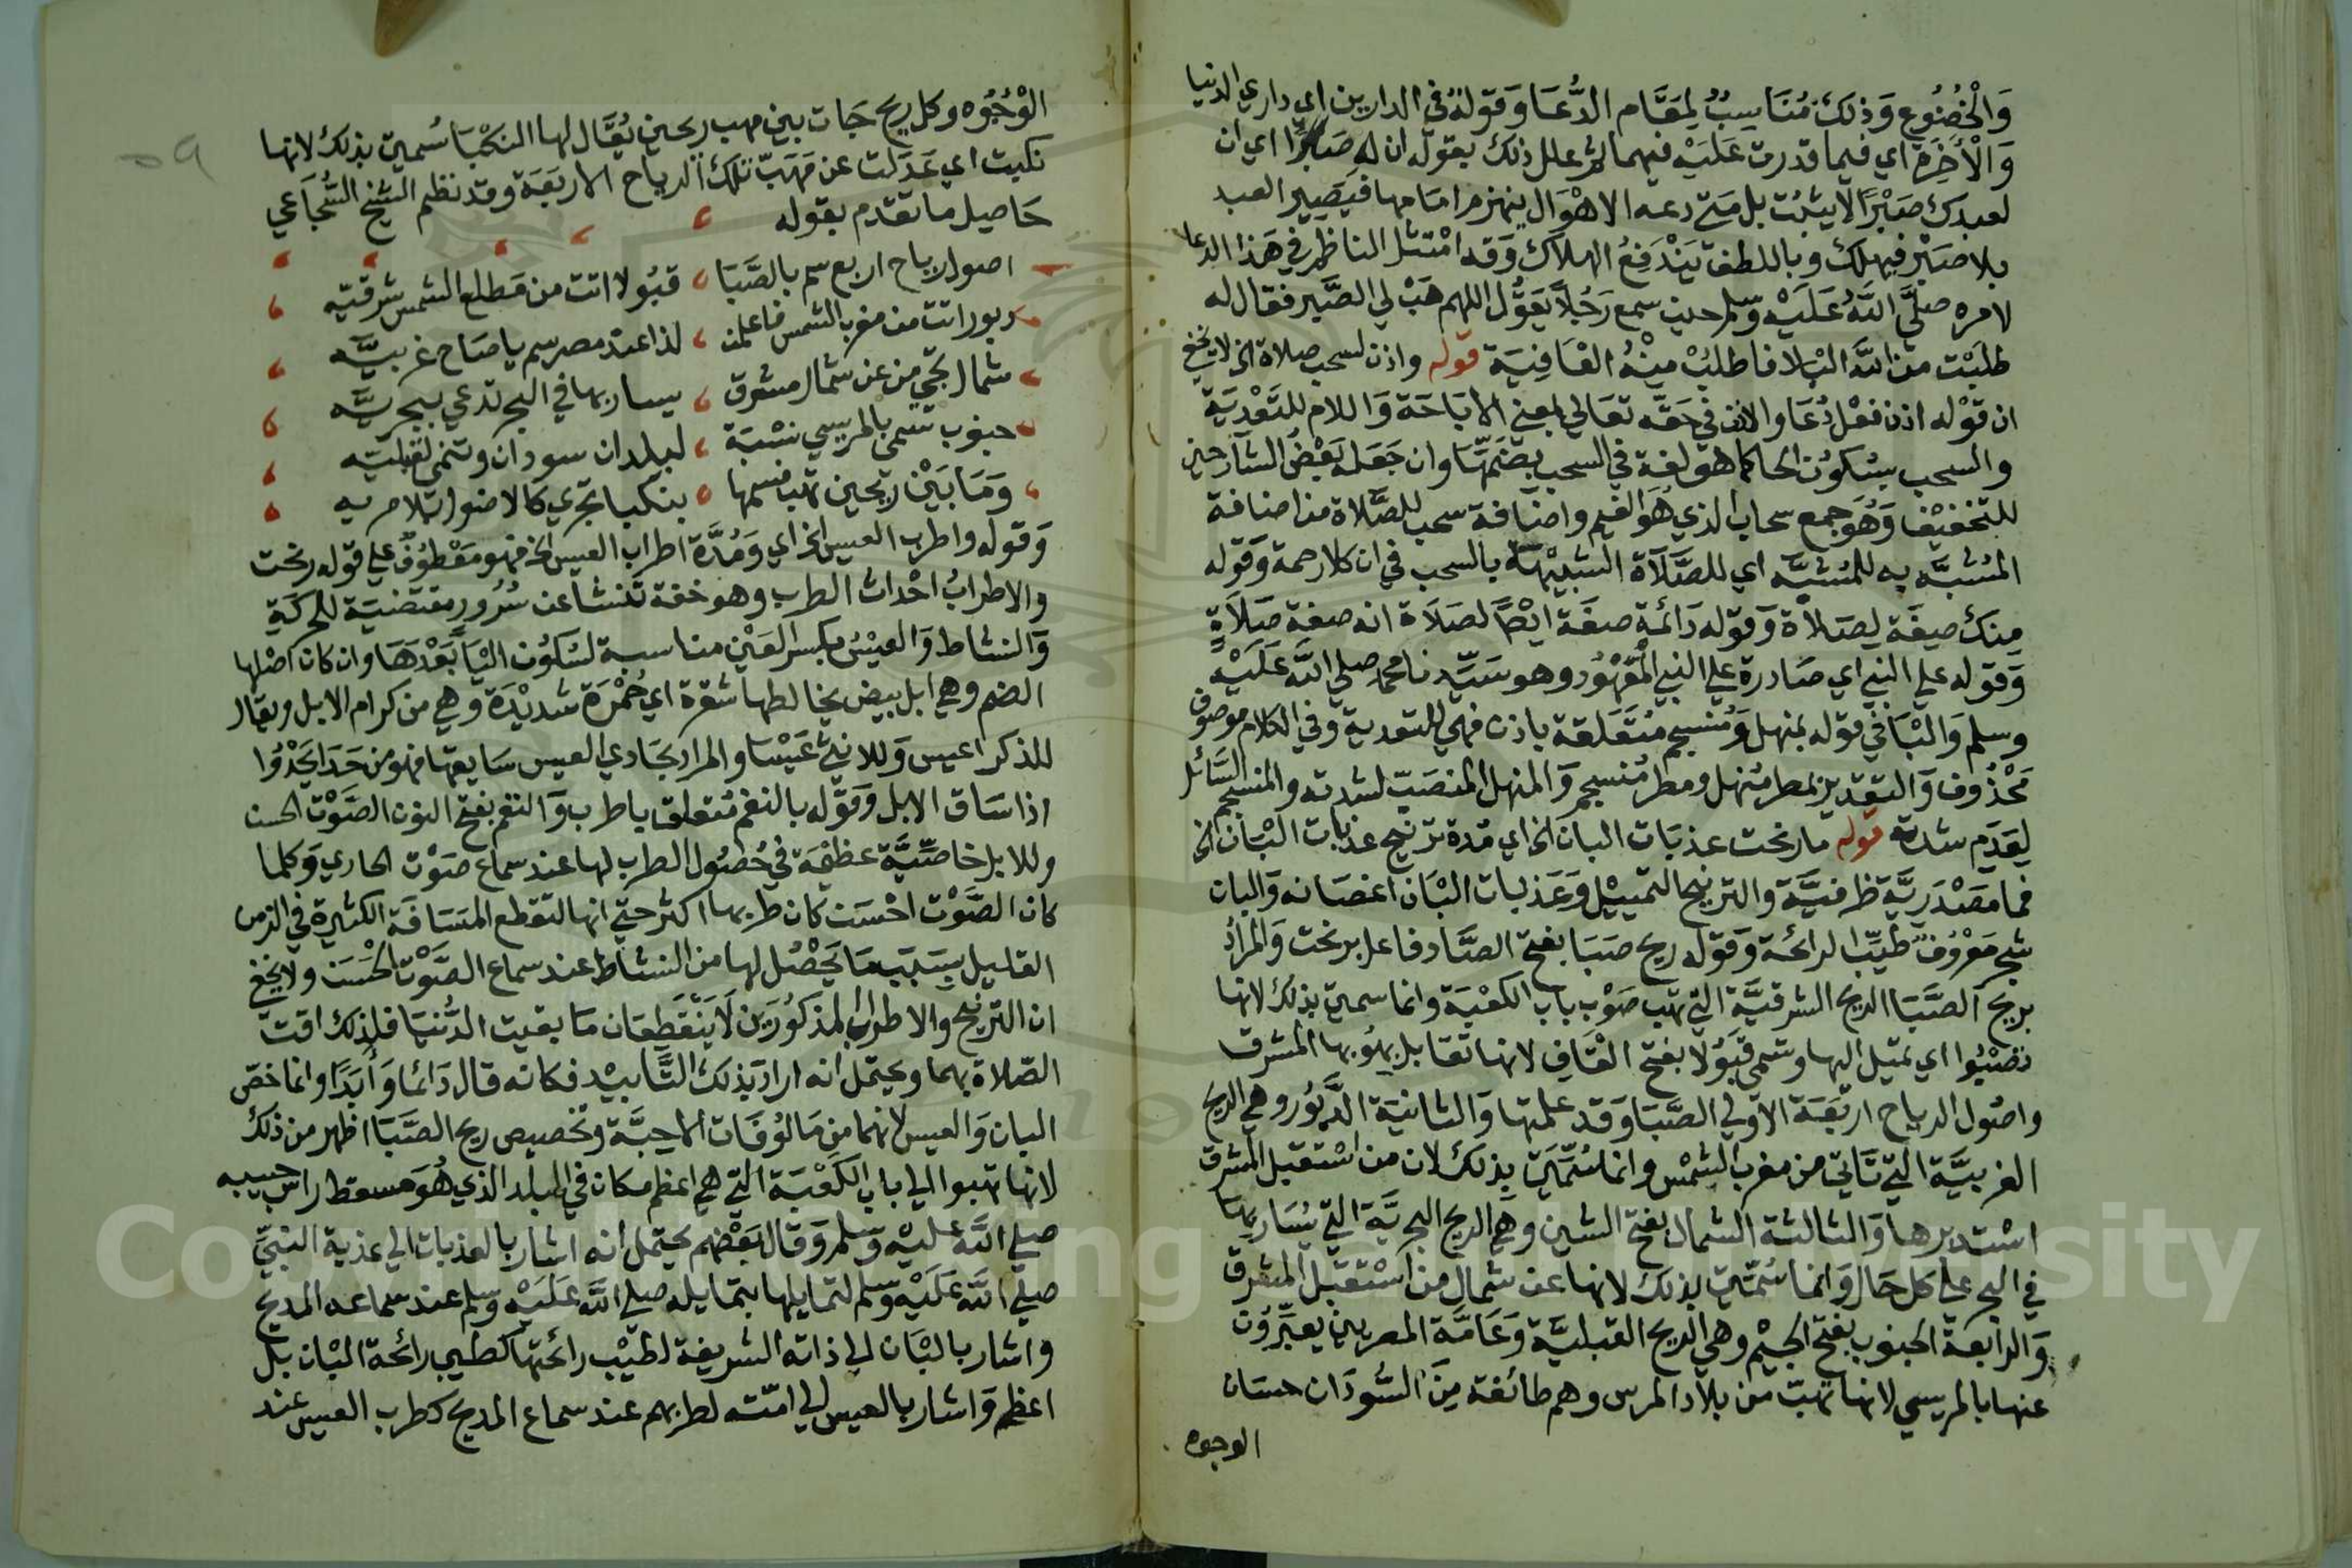 والخضوع وذلك مناسب لمقام الدعا وقوله في الدارين اي داري الدنيا
والاخرة اي فيما قدرت عليه فيهما ثم علل ذلك بقوله ان له صبرا اي ان
لعبدك صبرا لا يثبت بل متى دعته الاهوال ينهزم امامها فيصير العبد
بلا صبر فيهلك وباللطف يندفع الهلاك وقد امتثل الناظم في هذا الدعا
لامره صلى الله عليه وسلم حين سمع رجلا يقول اللهم هب لي الصبر فقال له
طلبت من الله البلا فاطلب منه العافية قوله واذن لسحب صلاة الخ لا يخفى
ان قوله اذن فعل دعا والاذن في حقه تعالى بمعنى الاباحة واللام للتعدية
والسحب بسكون الحا كما هو لغة في السحب بضمتها وان جعله بعض الشارحين
للتخفيف وهو جمع سحاب الذي هو الغيم واضافة سحب للصلاة من اضافة
المشبه به للمشبه اي للصلاة الشبيهة بالسحب في ان كلا رحمة وقوله
منك صفة لصلاة وقوله دائمة صفة ايضا لصلاة انه صفة صلاة
وقوله على النبي اي صادرة على النبي المعهود وهو سيدنا محمد صلى الله عليه
وسلم والبا في قوله بمنهل ومنسجم متعلقة باذن فهي للتعدية وفي الكلام موصوف
محذوف والتقدير بمطر منهل ومطر منسجم والمنهل المنصب لشدته والمنسجم السائل
لعدم شدته قوله ما رنحت عذبات البان الخ اي مدة ترنيح عذبات البان الخ
فما مصدرية ظرفية والترنيح التمييل وعذبات البان اغصانه والبان
شجر معروف طيب الرائحة وقوله ريح صبا بفتح الصاد فاعل برنحت والمراد
بريح الصبا الريح الشرقية التي تهب صوب باب الكعبة وانما سميت بذلك لانها
تصبوا اي تميل اليها وتسمى قبولا بفتح القاف لانها تقابل بهبوبها المشرق
واصول الرياح اربعة الاولى الصبا وقد علمتها والثانية الدبور وهي الريح
الغربية التي تاتي من مغرب الشمس وانما سميت بذلك لان من استقبل المشرق
استدبرها والثالثة الشمال بفتح الشين وهي الريح البحرية التي يسار بها
في البحر على كل حال وانما سميت بذلك لانها عن شمال من استقبل المشرق
والرابعة الجنوب بفتح الجيم وهي الريح القبلية وعامة المصريين يعبرون
عنها بالمريسي لانها تهب من بلاد المرس وهم طائفة من السودان حسان
الوجوه
٥٩
الوجوه وكل ريح جات بين مهب ريحين يقال لها النكبا سميت بذلك لانها
نكبت اي عدلت عن مهب تلك الرياح الاربعة وقد نظم الشيخ الشجاعي
حاصل ما تقدم بقوله
اصول رياح اربع سم بالصبا قبولا اتت من مطلع الشمس شرقيه
دبور اتت من مغرب الشمس فاعلمن لذا عند مصر سم يا صاح غربيه
شمال تجي من عن شمال مشرق يسار بها في البحر تدعى ببحريه
جنوب تسمى بالمريسي نسبة لبلدان سودان وتنمى لقبليه
وما بين ريحين تهب فسمها بنكبا تجري كالاصول بلا مريه
وقوله واطرب العيس الخ اي ومدة اطراب العيس الخ فهو معطوف على قوله رنحت
والاطراب احداث الطرب وهو خفة تنشا عن سرور مقتضية للحركة
والنشاط والعيس بكسر العين مناسبة لسكون اليا بعدها وان كان اصلها
الضم وهي ابل بيض يخالطها شقرة اي حمرة شديدة وهي من كرام الابل ويقال
للذكر اعيس وللانثى عيسا والمراد بحادي العيس سايقها فهو من حدا يحدوا
اذا ساق الابل وقوله بالنغم متعلق باطرب والنغم بفتح النون الصوت الحسن
وللابل خاصية عظيمة في حصول الطرب لها عند سماع صوت الحادي وكلما
كان الصوت احسن كان طربها اكثر حتى انها لتقطع المسافة الكثيرة في الزمن
القليل بسبب ما يحصل لها من النشاط عند سماع الصوت الحسن ولا يخفى
ان الترنيح والاطراب المذكورين لا ينقطعان ما بقيت الدنيا فلذلك اقت
الصلاة بهما ويحتمل انه اراد بذلك التابيد فكانه قال دائما وابدا وانما خص
البان والعيس لانهما من مالوفات الاحبة وتخصيص ريح الصبا اظهر من ذلك
لانها تهبوا الى باب الكعبة التي هي اعظم مكان في البلد الذي هو مسقط راس حبيبه
صلى الله عليه وسلم وقال بعضهم يحتمل انه اشار بالعذبات الى عذبة النبي
صلى الله عليه وسلم لتمايلها بتمايله صلى الله عليه وسلم عند سماعه المديح
واشار بالبان الى ذاته الشريفة لطيب رائحتها كطيب رائحة البان بل
اعظم واشار بالعيس الى امته لطربهم عند سماع المديح كطرب العيس عند